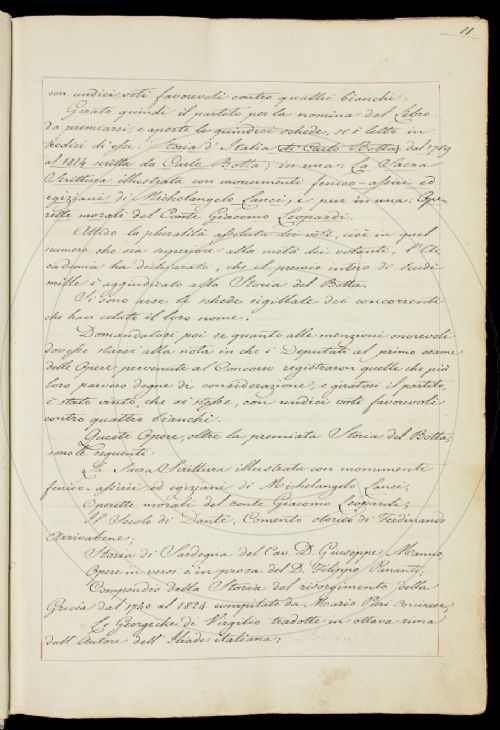 11
con undici voti favorevoli contro quattro bianchi.
Girato quindi il partito per la nomina del Libro
da premiarsi, e aperte le quindici schede, si è letto in
tredici di esse: Storia d'Italia di Carlo Botta dal 1789
al 1814 scritta da Carlo Botta; in una: La Sacra
Scrittura illustrata con monumenti fenico-assiri ed
egiziani di Michelangelo Lanci; e pur in una: Ope-
rette morali del Conte Giacomo Leopardi.
Atteso la pluralità assoluta dei voti, cioè in quel
numero che sia superiore alla metà dei votanti, l'Ac-
cademia ha dichiarato, che il premio intero di scudi
mille è aggiudicato alla Storia del Botta.
Si sono arse le schede sigillate dei concorrenti
che han celato il loro nome.
Domandatosi poi se quanto alle menzioni onorevoli
dovesse starsi alla nota in che i Deputati al primo esame
delle Opere pervenute al Concorso registraron quelle che più
loro parvero degne di considerazione, e giratosi il partito,
è stato vinto, che si stesse, con undici voti favorevoli
contro quattro bianchi.
Queste Opere, oltre la premiata Storia del Botta,
sono le seguenti:
La Sacra Scrittura illustrata con monumenti
fenico-assirii ed egiziani di Michelangelo Lanci;
Operette morali del conte Giacomo Leopardi;
Il Secolo di Dante, Comento storico di Ferdinando
Arrivabene;
Storia di Sardegna del Cav. D. Giuseppe Manno;
Opere in versi e in prosa del D. Filippo Pananti;
Compendio della Storia del risorgimento della
Grecia dal 1740 al 1824 compilato da Mario Pieri Corcirese;
Le Georgiche di Virgilio tradotte in ottava rima
dall'Autore dell'Iliade italiana;